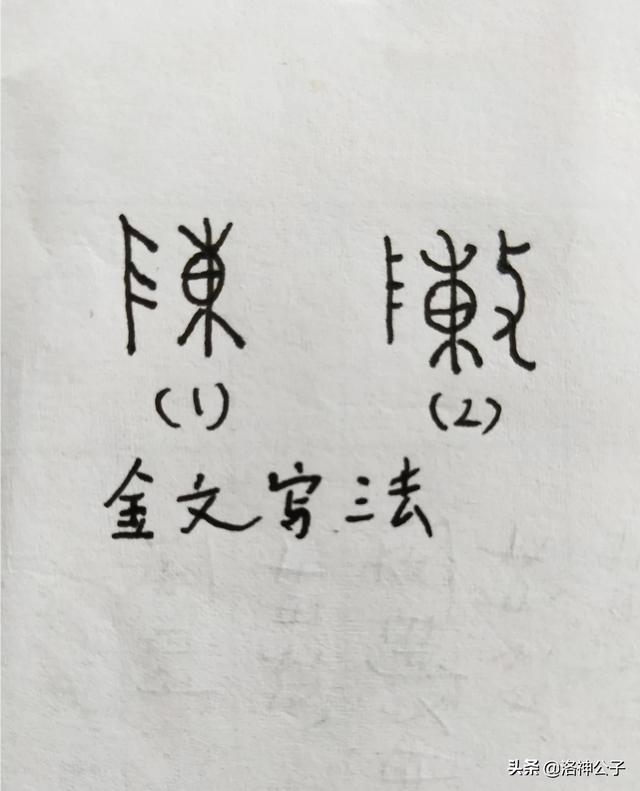 陳 敶
(1) (2)
金文写法
头条 @洛神公子